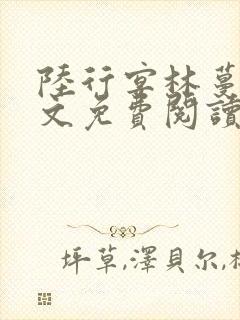 陸行宽林蔓
文免費閱讀
坪草,澤貝尔,杉